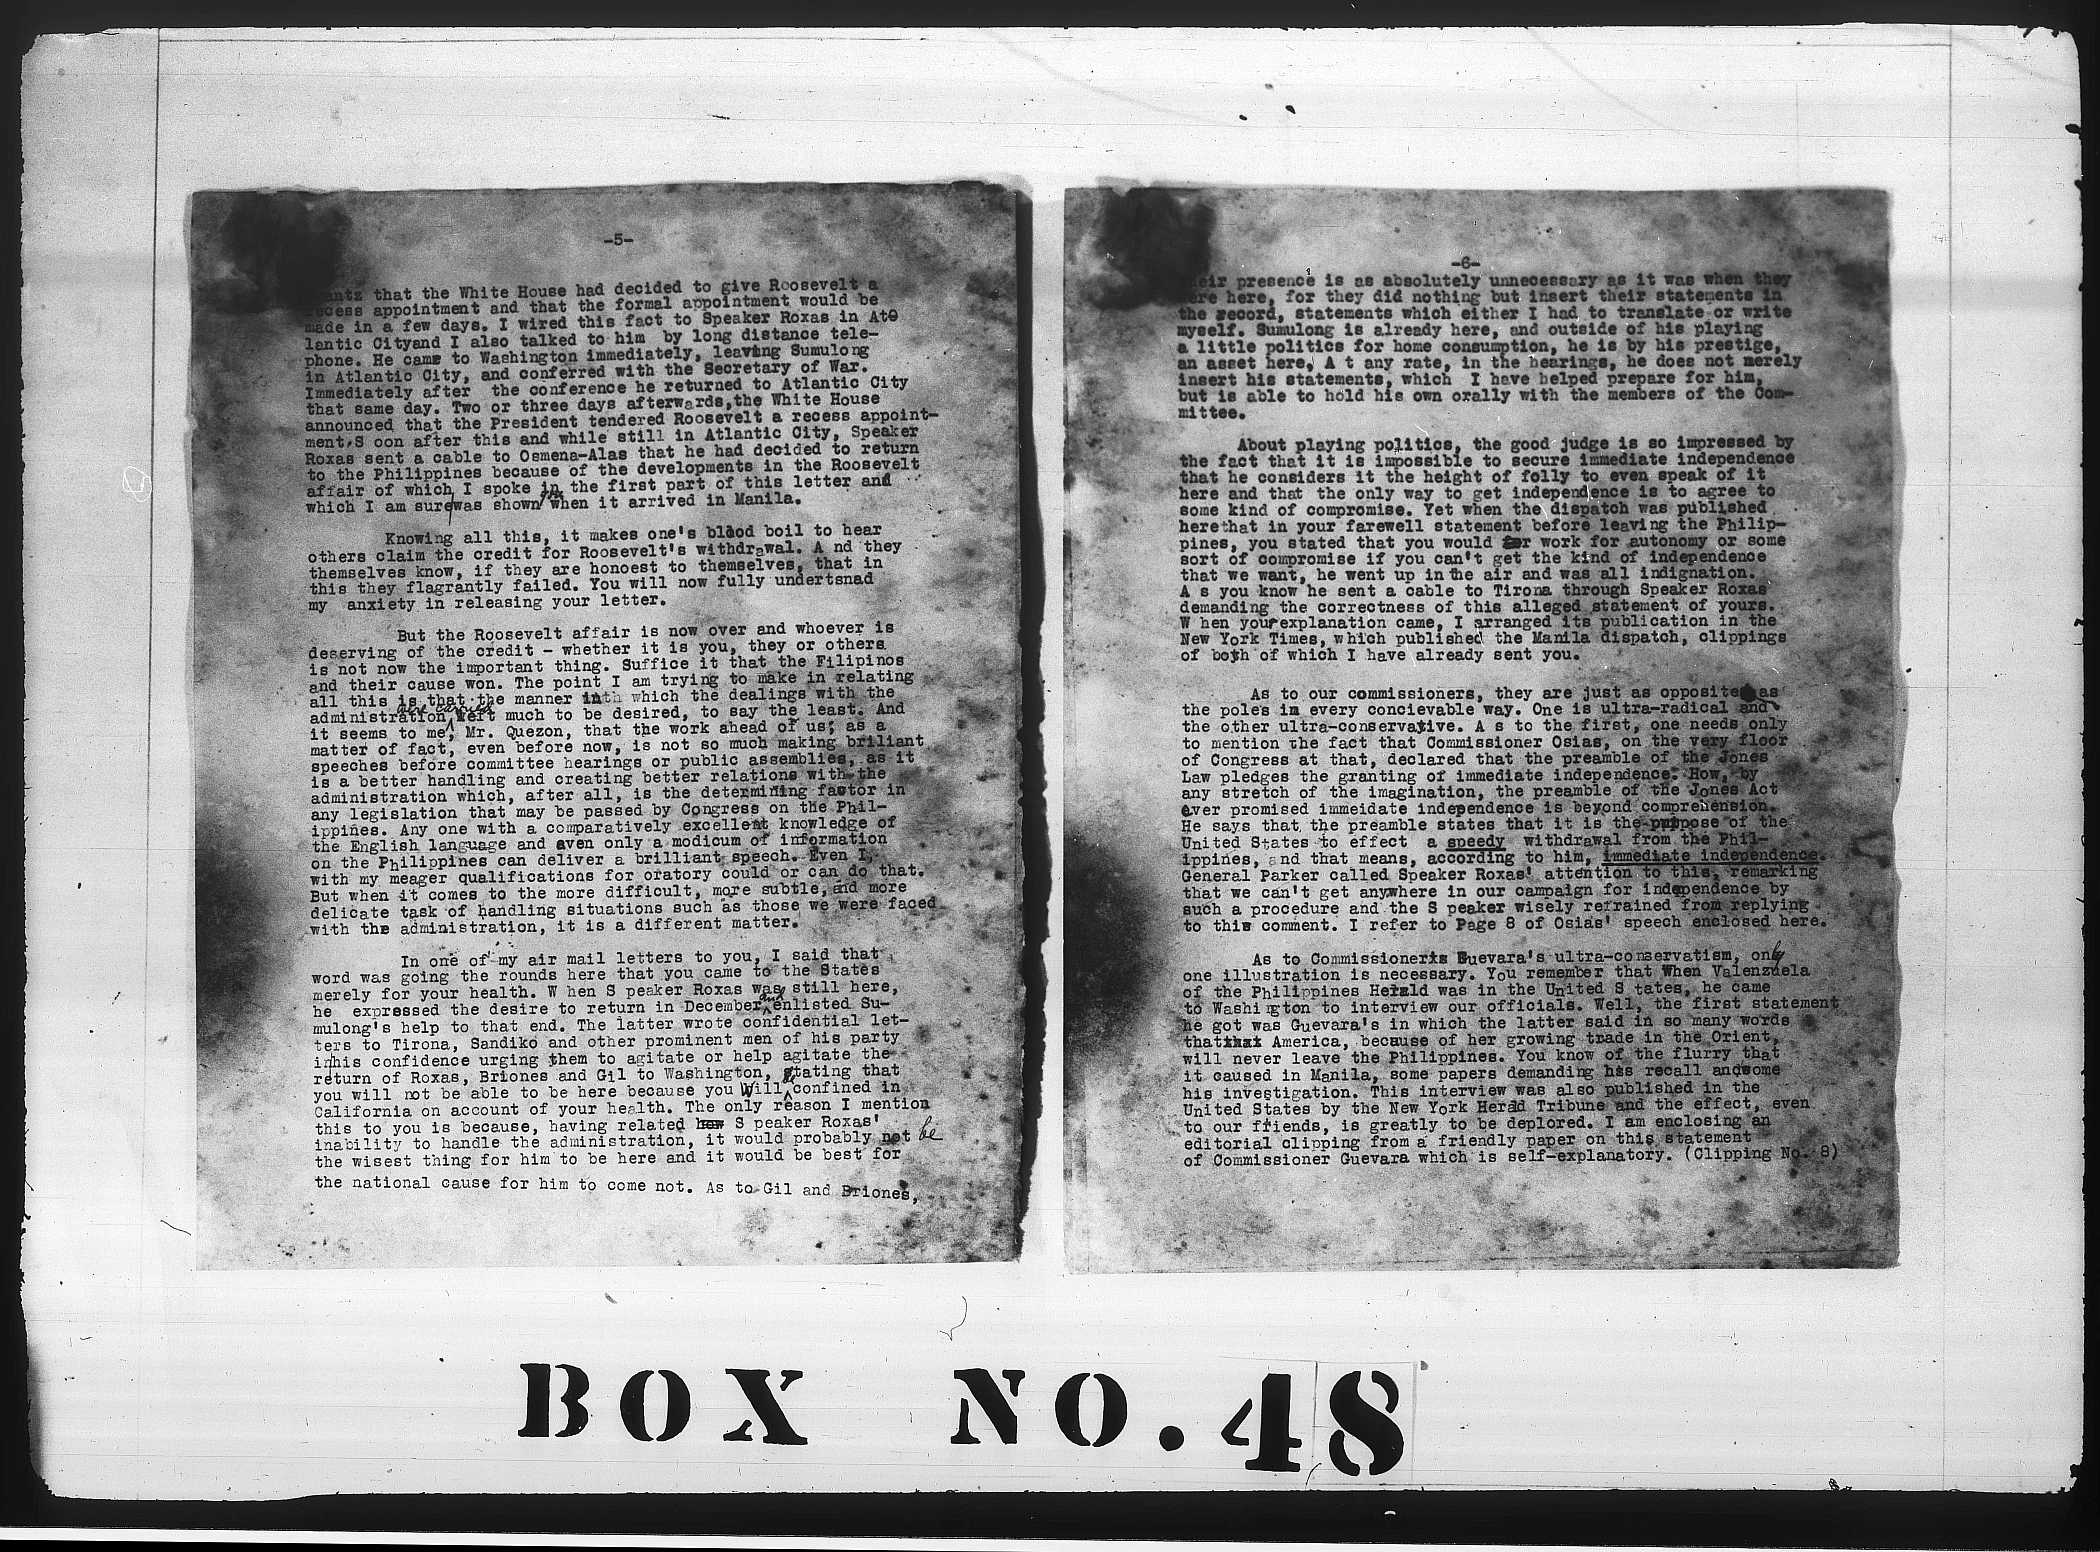 -5-
that the White House had decided to give Roosevelt a
recess appointment and that the formal appointment would be
made in a few days. I wired this fact to Speaker Roxas in At
lantic Cityand I also talked to him by long distance tele-
phone. He came to Washington immediately, leaving Sumulong
in Atlantic City, and conferred with the Secretary of War.
Immediately after the conference he returned to Atlantic City
that same day. Two or three days afterwards,the White House
announced that the President tendered Roosevelt a recess appoint-
ment.S oon after this and while still in Atlantic City, Speaker
Roxas sent a cable to Osmena-Alas that he had decided to return
to the Philippines because of the developments in the Roosevelt
affair of which I spoke in the first part of this letter and
which I am sure was shown you when it arrived in Manila.
Knowing all this, it makes one's blood boil to hear
others claim the credit for Roosevelt's withdrawal. A nd they
themselves know, if they are honoest to themselves, that in
this they flagrantly failed. You will now fully undertsnad
my anxiety in releasing your letter.
But the Roosevelt affair is now over and whoever is
deserving of the credit - whether it is you, they or others
is not now the important thing. Suffice it that the Filipinos
and their cause won. The point I am trying to make in relating
all this is that the manner in which the dealings with the
administration were carried left much to be desired, to say the least. And
it seems to me, Mr. Quezon, that the work ahead of us, as a
matter of fact, even before now, is not so much making briliant
speeches before committee hearings or public assemblies, as it
is a better handling and creating better relations with the
administration which, after all, is the determining factor in
any legislation that may be passed by Congress on the Phil-
ippines. Any one with a comparatively excellent knowledge of
the English language and even only a modicum of information
on the Philippines can deliver a brilliant speech. Even I,
with my meager qualifications for oratory could or can do that.
But when it comes to the more difficult, more subtle, and more
delicate task of handling situations such as those we were faced
with the administration, it is a different matter.
In one of my air mail letters to you, I said that
word was going the rounds here that you came to the States
merely for your health. W hen S peaker Roxas was still here,
he expressed the desire to return in December and enlisted Su-
mulong's help to that end. The latter wrote confidential let-
ters to Tirona, Sandiko and other prominent men of his party
in his confidence urging them to agitate or help agitate the
return of Roxas, Briones and Gil to Washington, stating that
you will not be able to be here because you will be confined in
California on account of your health. The only reason I mention
this to you is because, having related S peaker Roxas'
inability to handle the administration, it would probably not be
the wisest thing for him to be here and it would be best for
the national cause for him to come not. As to Gil and Briones,
-6-
their presence is as absolutely unnecessary as it was when they
were here, for they did nothing but insert their statements in
the record, statements which either I had to translate or write
myself. Sumulong is already here, and outside of his playing
a little politics for home consumption, he is by his prestige,
an asset here, A t any rate, in the hearings, he does not merely
insert his statements, which I have helped prepare for him,
but is able to hold his own orally with the members of the Com-
mittee.
About playing politics, the good judge is so impressed by
the fact that it is impossible to secure immediate independence
that he considers it the height of folly to even speak of it
here and that the only way to get independence is to agree to
some kind of compromise. Yet when the dispatch was published
herethat in your farewell statement before leaving the Philip-
pines, you stated that you would work for autonomy or some
sort of compromise if you can't get the kind of independence
that we want, he went up in the air and was all indignation.
A s you know he sent a cable to Tirona through Speaker Roxas
demanding the correctness of this alleged statement of yours.
W hen your explanation came, I arranged its publication in the
New York Times, which published the Manila dispatch, clippings
of both of which I have already sent you.
As to our commissioners, they are just as opposite as
the poles in every concievable way. One is ultra-radical and
the other ultra-conservative. A s to the first, one needs only
to mention the fact that Commissioner Osias, on the very floor
of Congress at that, declared that the preamble of the Jones
Law pledges the granting of immediate independence. How, by
any stretch of the imagination, the preamble of the Jones Act
ever promised immeidate independence is beyond comprehension.
He says that the preamble states that it is the purpose of the
United States to effect a speedy withdrawal from the Phil-
ippines, and that means, according to him, immediate independence.
General Parker called Speaker Roxas' attention to this, remarking
that we can't get anywhere in our campaign for independence by
such a procedure and the S peaker wisely refrained from replying
to this comment. I refer to Page 8 of Osias' speech enclosed here.
As to Commissioner Guevara's ultra-conservatism, only
one illustration is necessary. You remember that When Valenzuela
of the Philippines Herald was in the United S tates, he came
to Washington to interview our officials. Well, the first statement
he got was Guevara's in which the latter said in so many words
that America, because of her growing trade in the Orient,
will never leave the Philippines. You know of the flurry that
it caused in Manila, some papers demanding his recall andsome
his investigation. This interview was also published in the
United States by the New York Herald Tribune and the effect, even
to our friends, is greatly to be deplored. I am enclosing an
editorial clipping from a friendly paper on this statement
of Commissioner Guevara which is self-explanatory. (Clipping No. 8)
BOX NO. 48